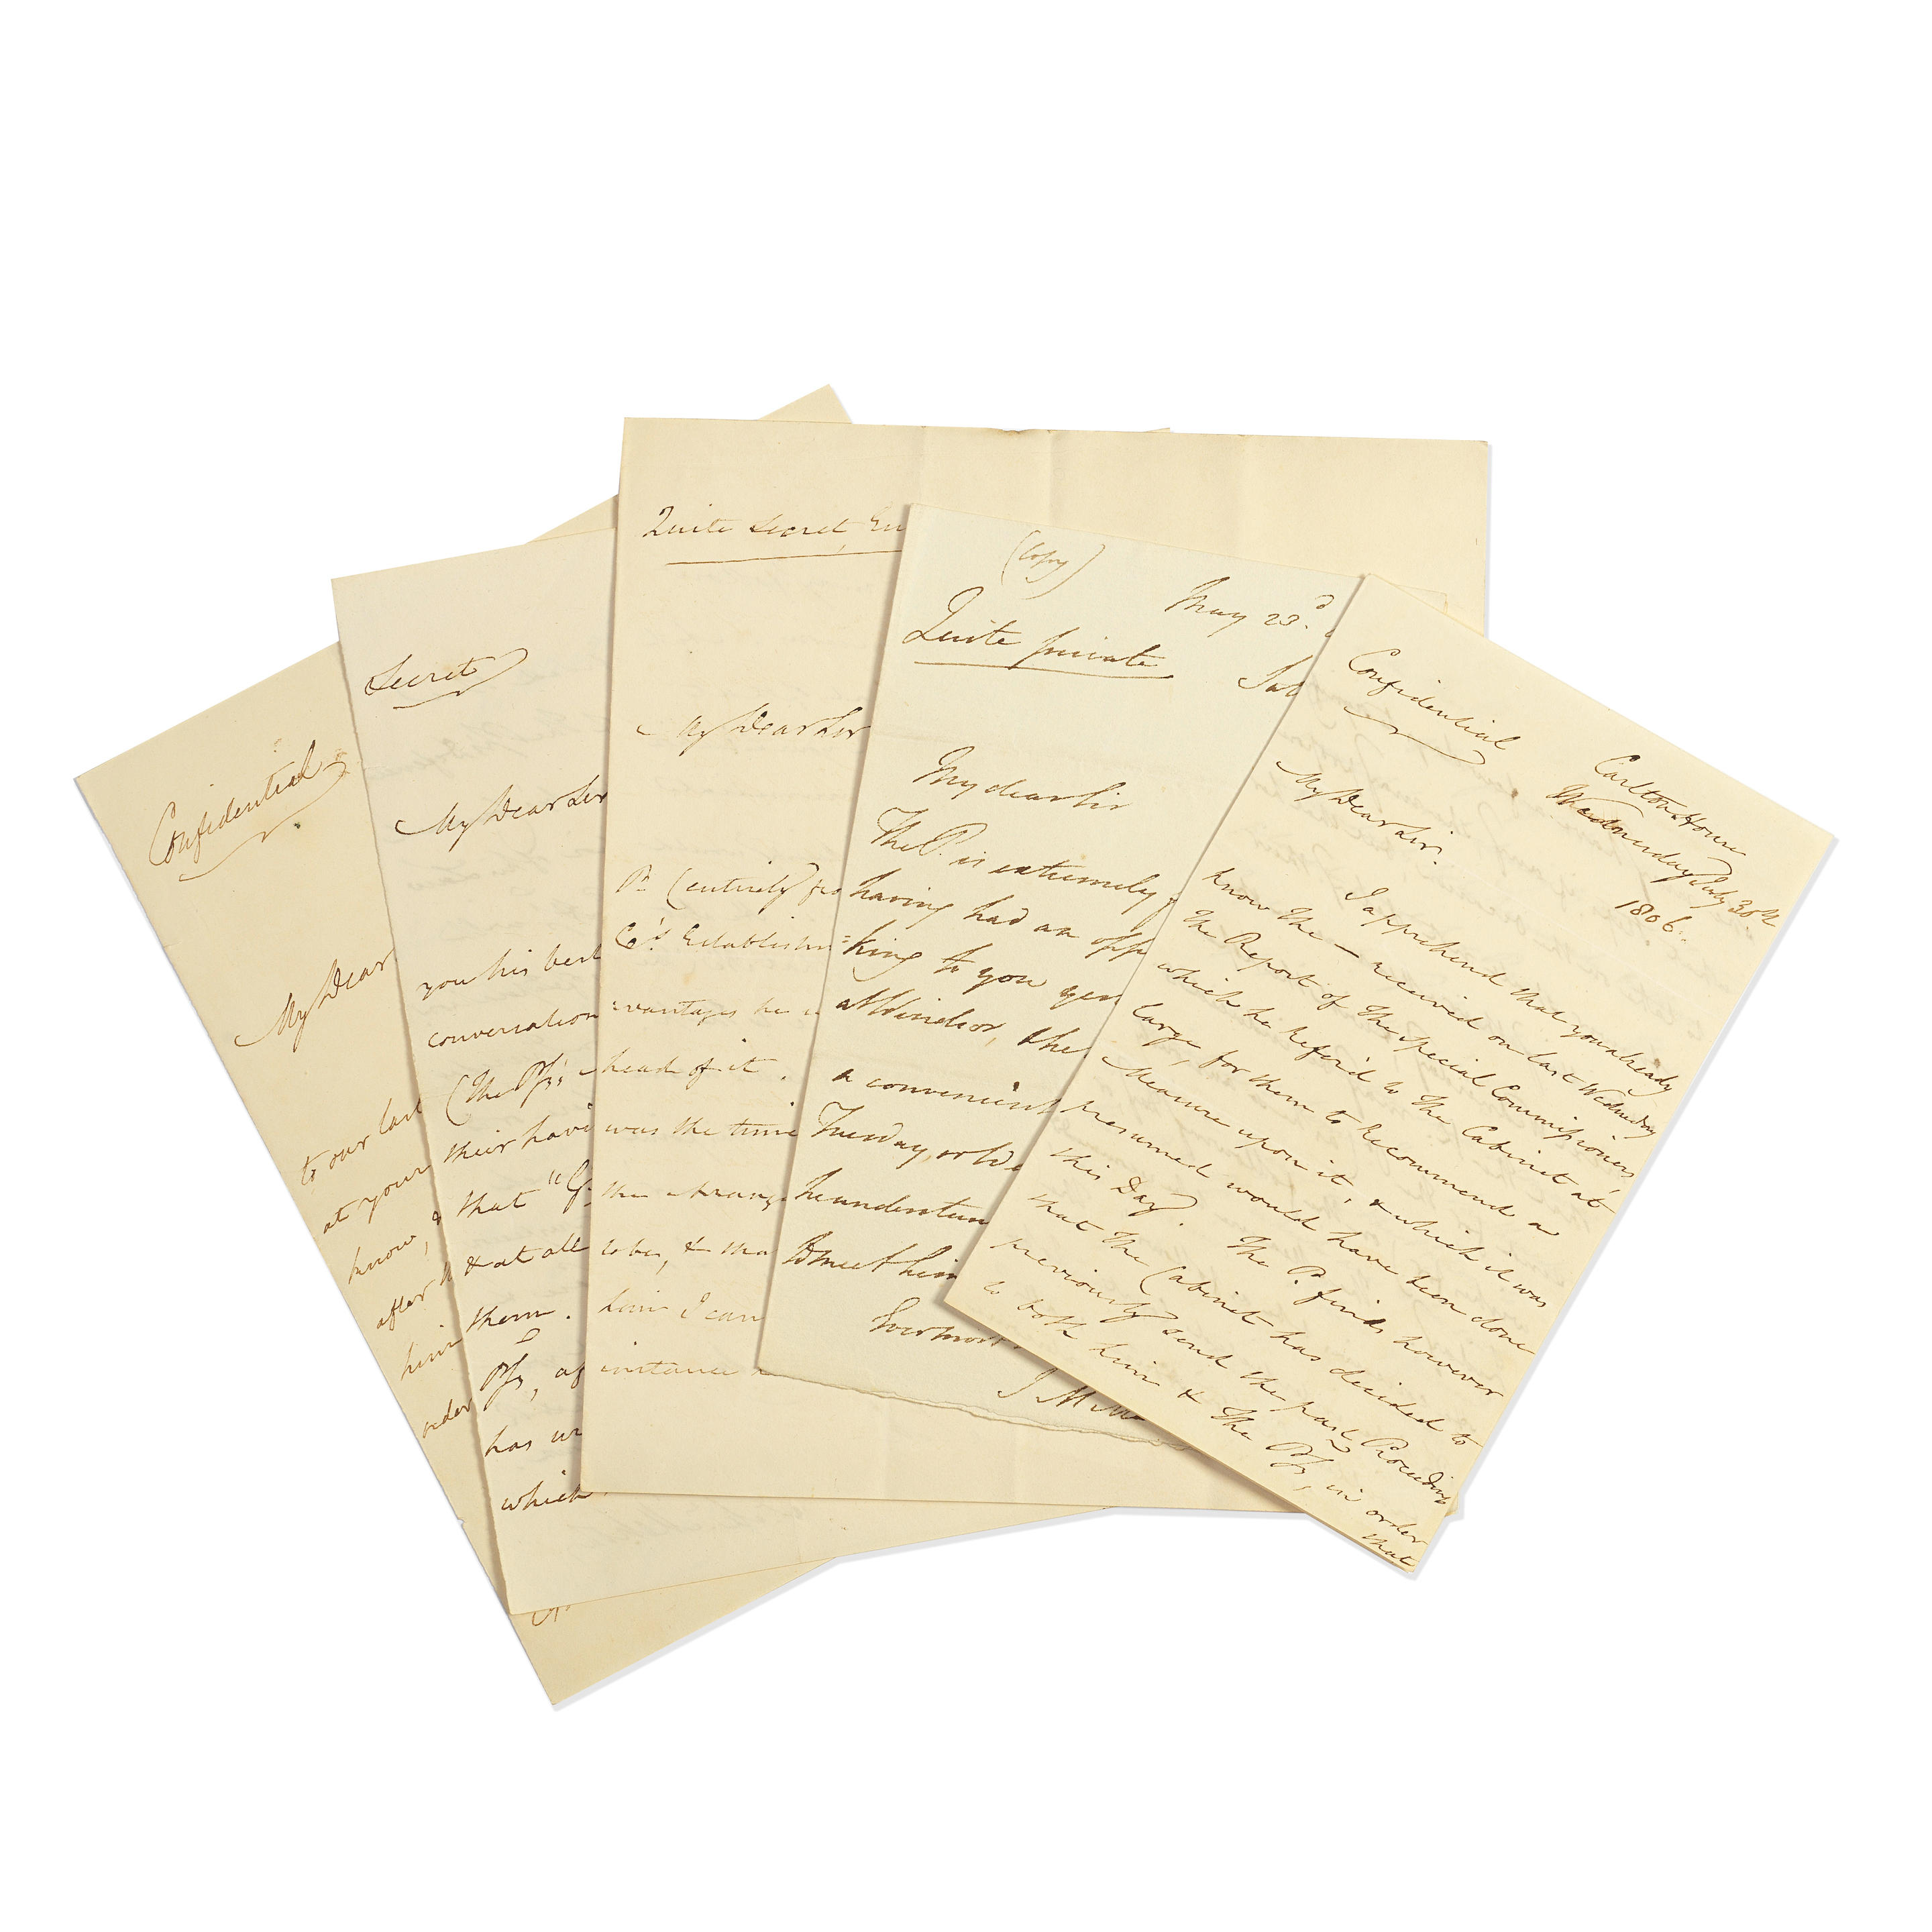 Confidential
My Dear
to our last
at your
know, &
after
him
order
Secret
My Dear Sir
you his best
conversation
(The Pss's
their havi
that "
& at all
them.
Pss, ag
has wr
which
Quite Secret,
My Dear Sir
Pss (entirely
Co's Establishm=
=vantages he
head of it.
was the time
the arrang
to be, & tha
him I can
instance
(Copy)
May 23d.
Quite private
My dear Sir
The P. is extremely
having had an opp
=king to you yes
at Windsor, the
a convenient
Tuesday, or We
he understan
to meet him
Evermore
J M
Confidential
Carlton House
Wednesday July 30th
1806.
My Dear Sir.
I apprehend that you already
know the — received on last Wednesday
the Report of the special Commissioners
which he Refer'd to the Cabinet at
large, for them to Recommend a
Measure upon it, & which it was
presumed would have been done
this Day. The P. finds however
that the Cabinet has decided to
previously send the past Proceedings
to both him & the Pss, in order
that